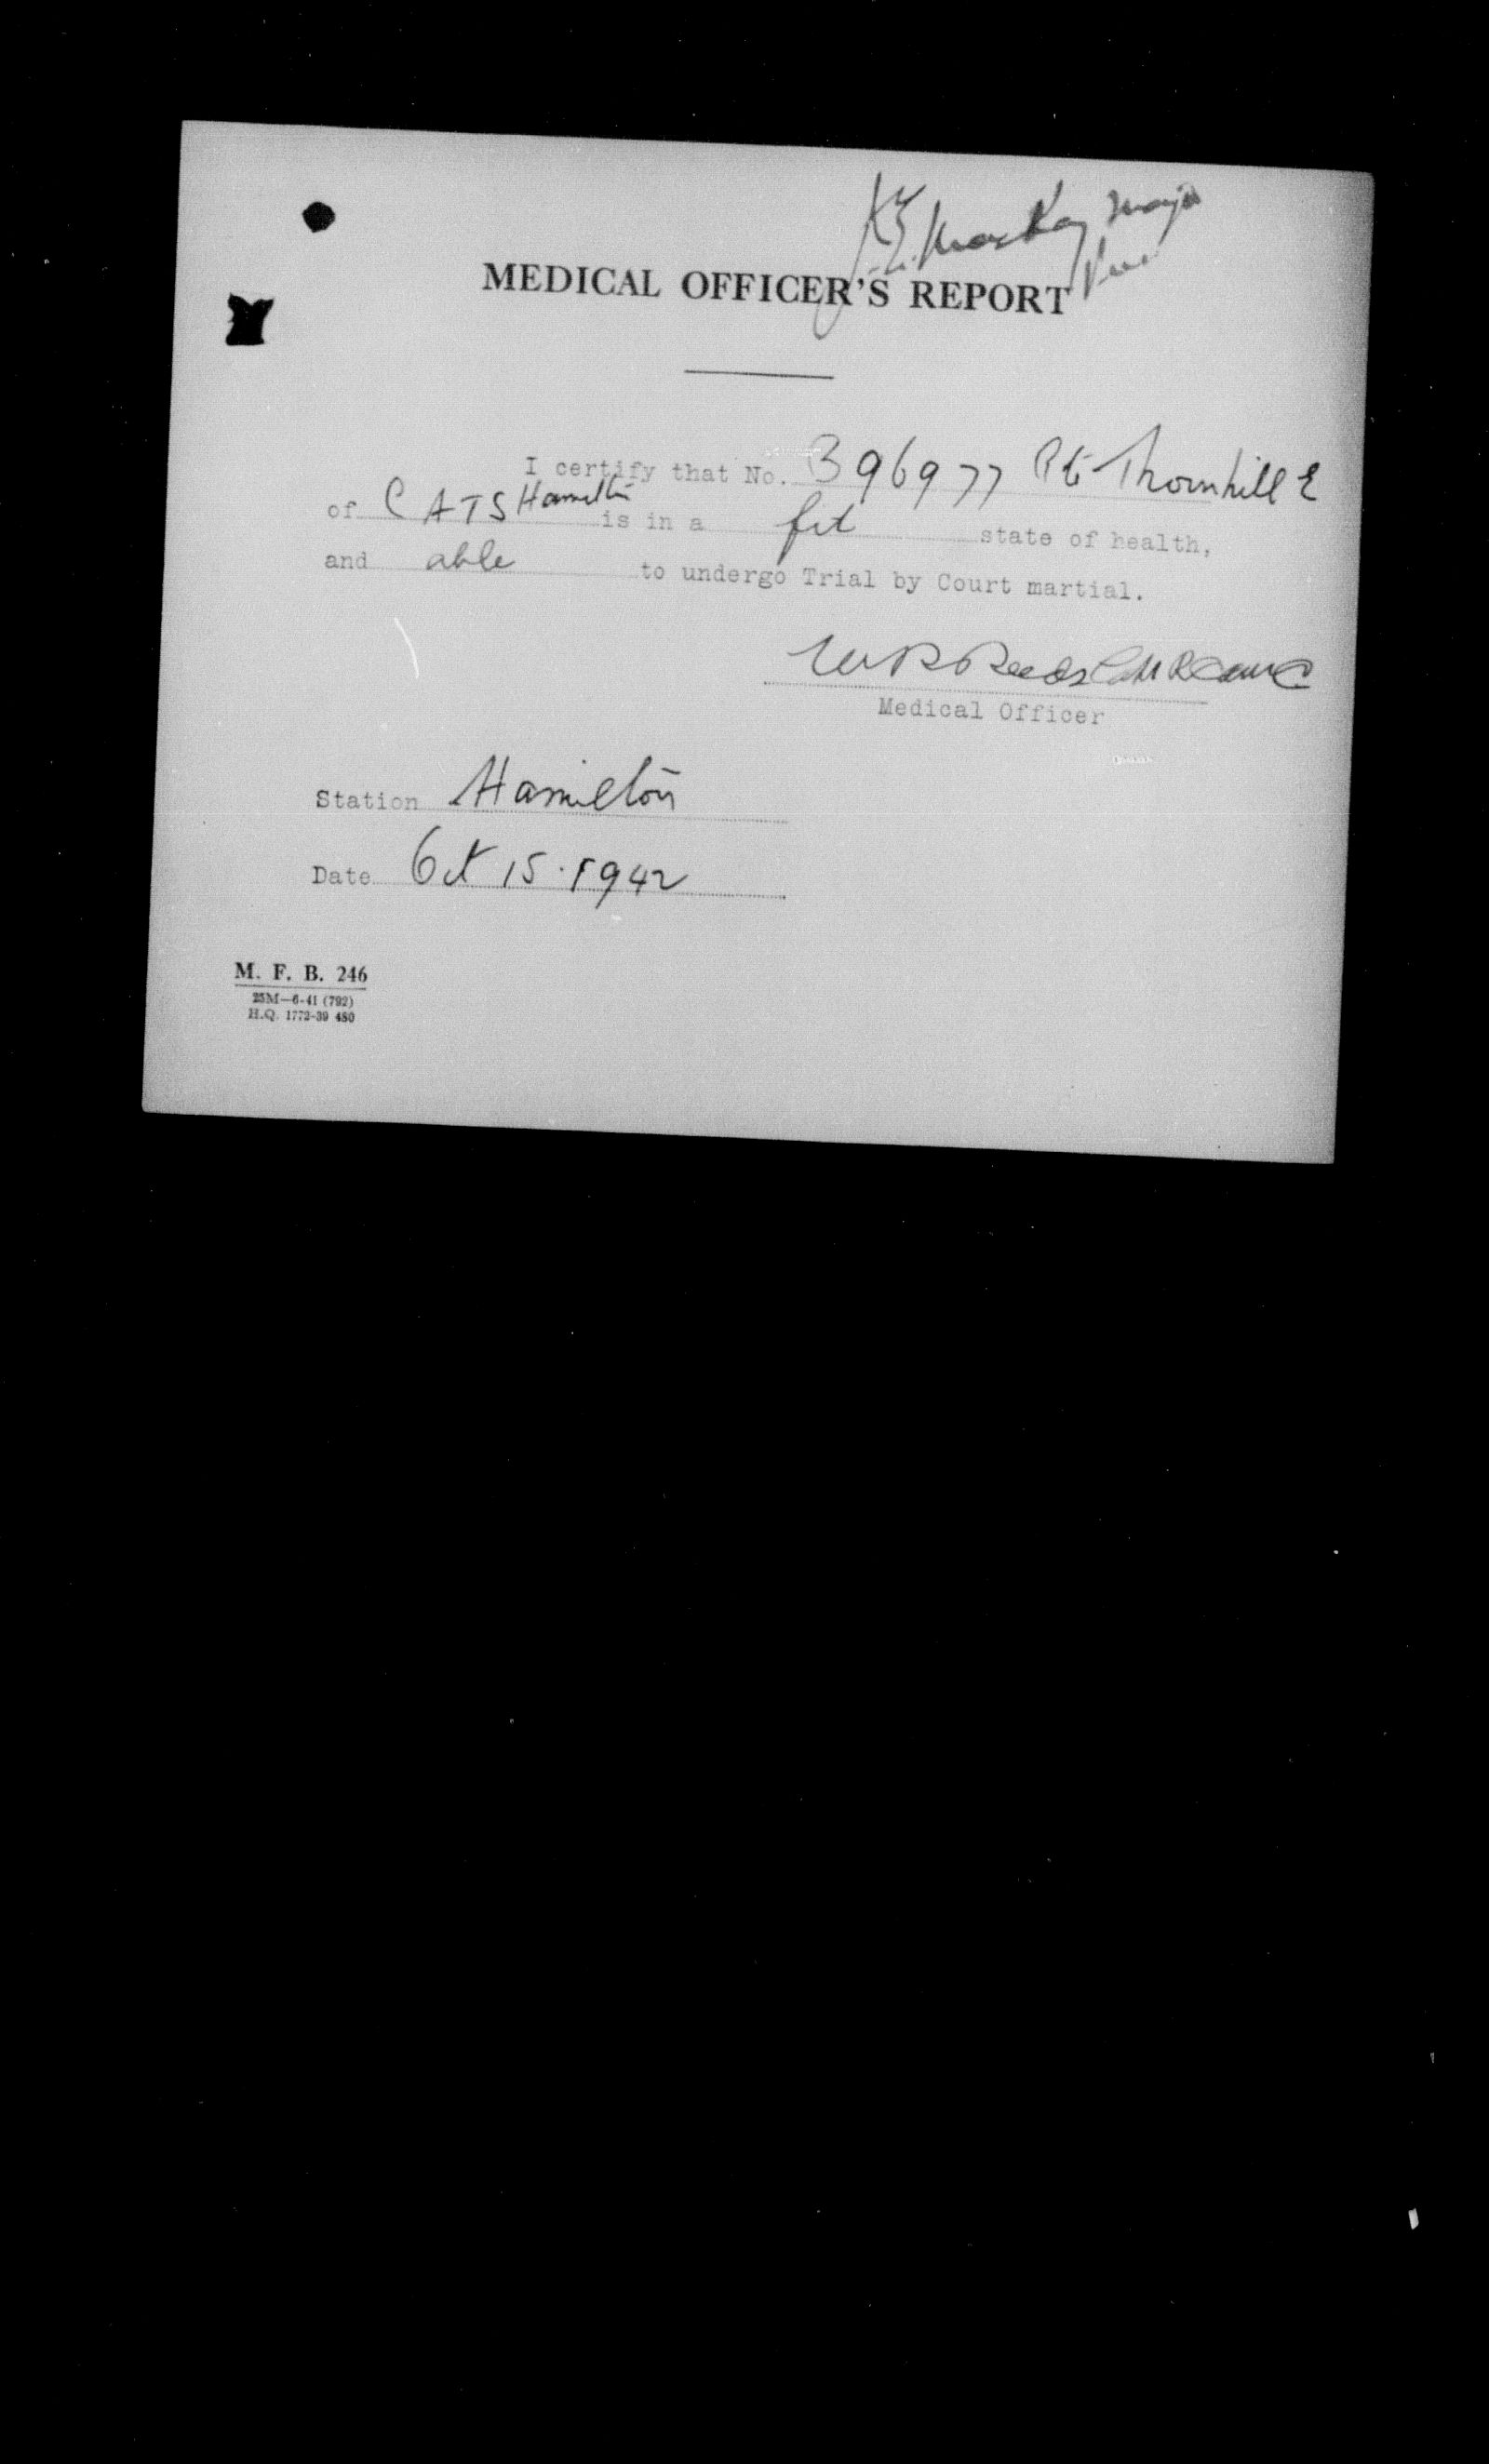 MacKay Major
MEDICAL OFFICER'S REPORT
I certify that No. B96977 Pte Thornhill E
of C A T S Hamilton is in a fit state of health,
and able to undergo Trial by Court martial.
Medical Officer
Station Hamilton
Date Oct 15.1942
M. F. B. 246
25M—6-41 (792)
H.Q. 1772-39 480